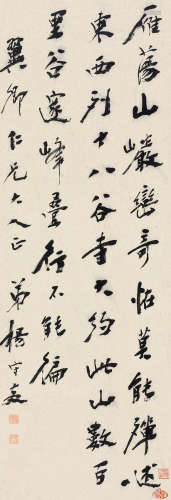 雁蕩山巖巒奇怪莫能殫述
東西列十八谷重大約此山數百
里谷邃峰疊行不能徧
翼卿仁兄大人正 弟楊守敬